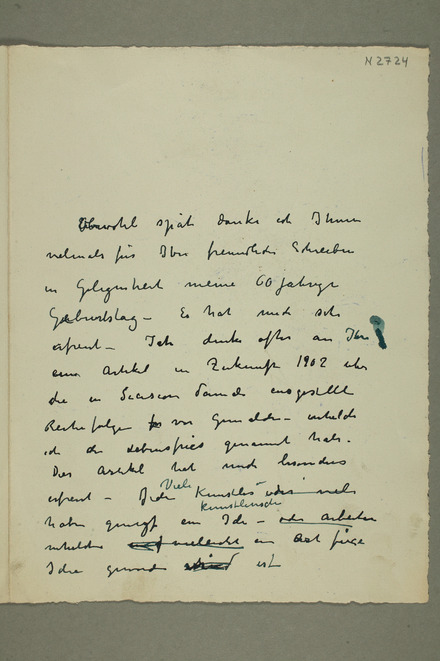 N 2724
Obwohl spät danke ich Ihnen
vielmals für Ihre freundliche Schreiben
in Gelegenheit meine 60 jahrige
Geburtstag – Es hat mich sehr
erfreut – Ich denke ofter an Ihre
eine Artikel in Zukunft 1902 uber
die in Secession damals ausgestellte
Reihefolge von Gemälde – welche
ich der Lebensfries genannt habe.
Der Artikel hat mich besonders
erfreut – Jeder Viele Künstler oder viele
Kunstlerische
haben gesagt ein Ide – oder arbeiten
welche und vielleicht ein Art fixe
Idee geworden sind ist